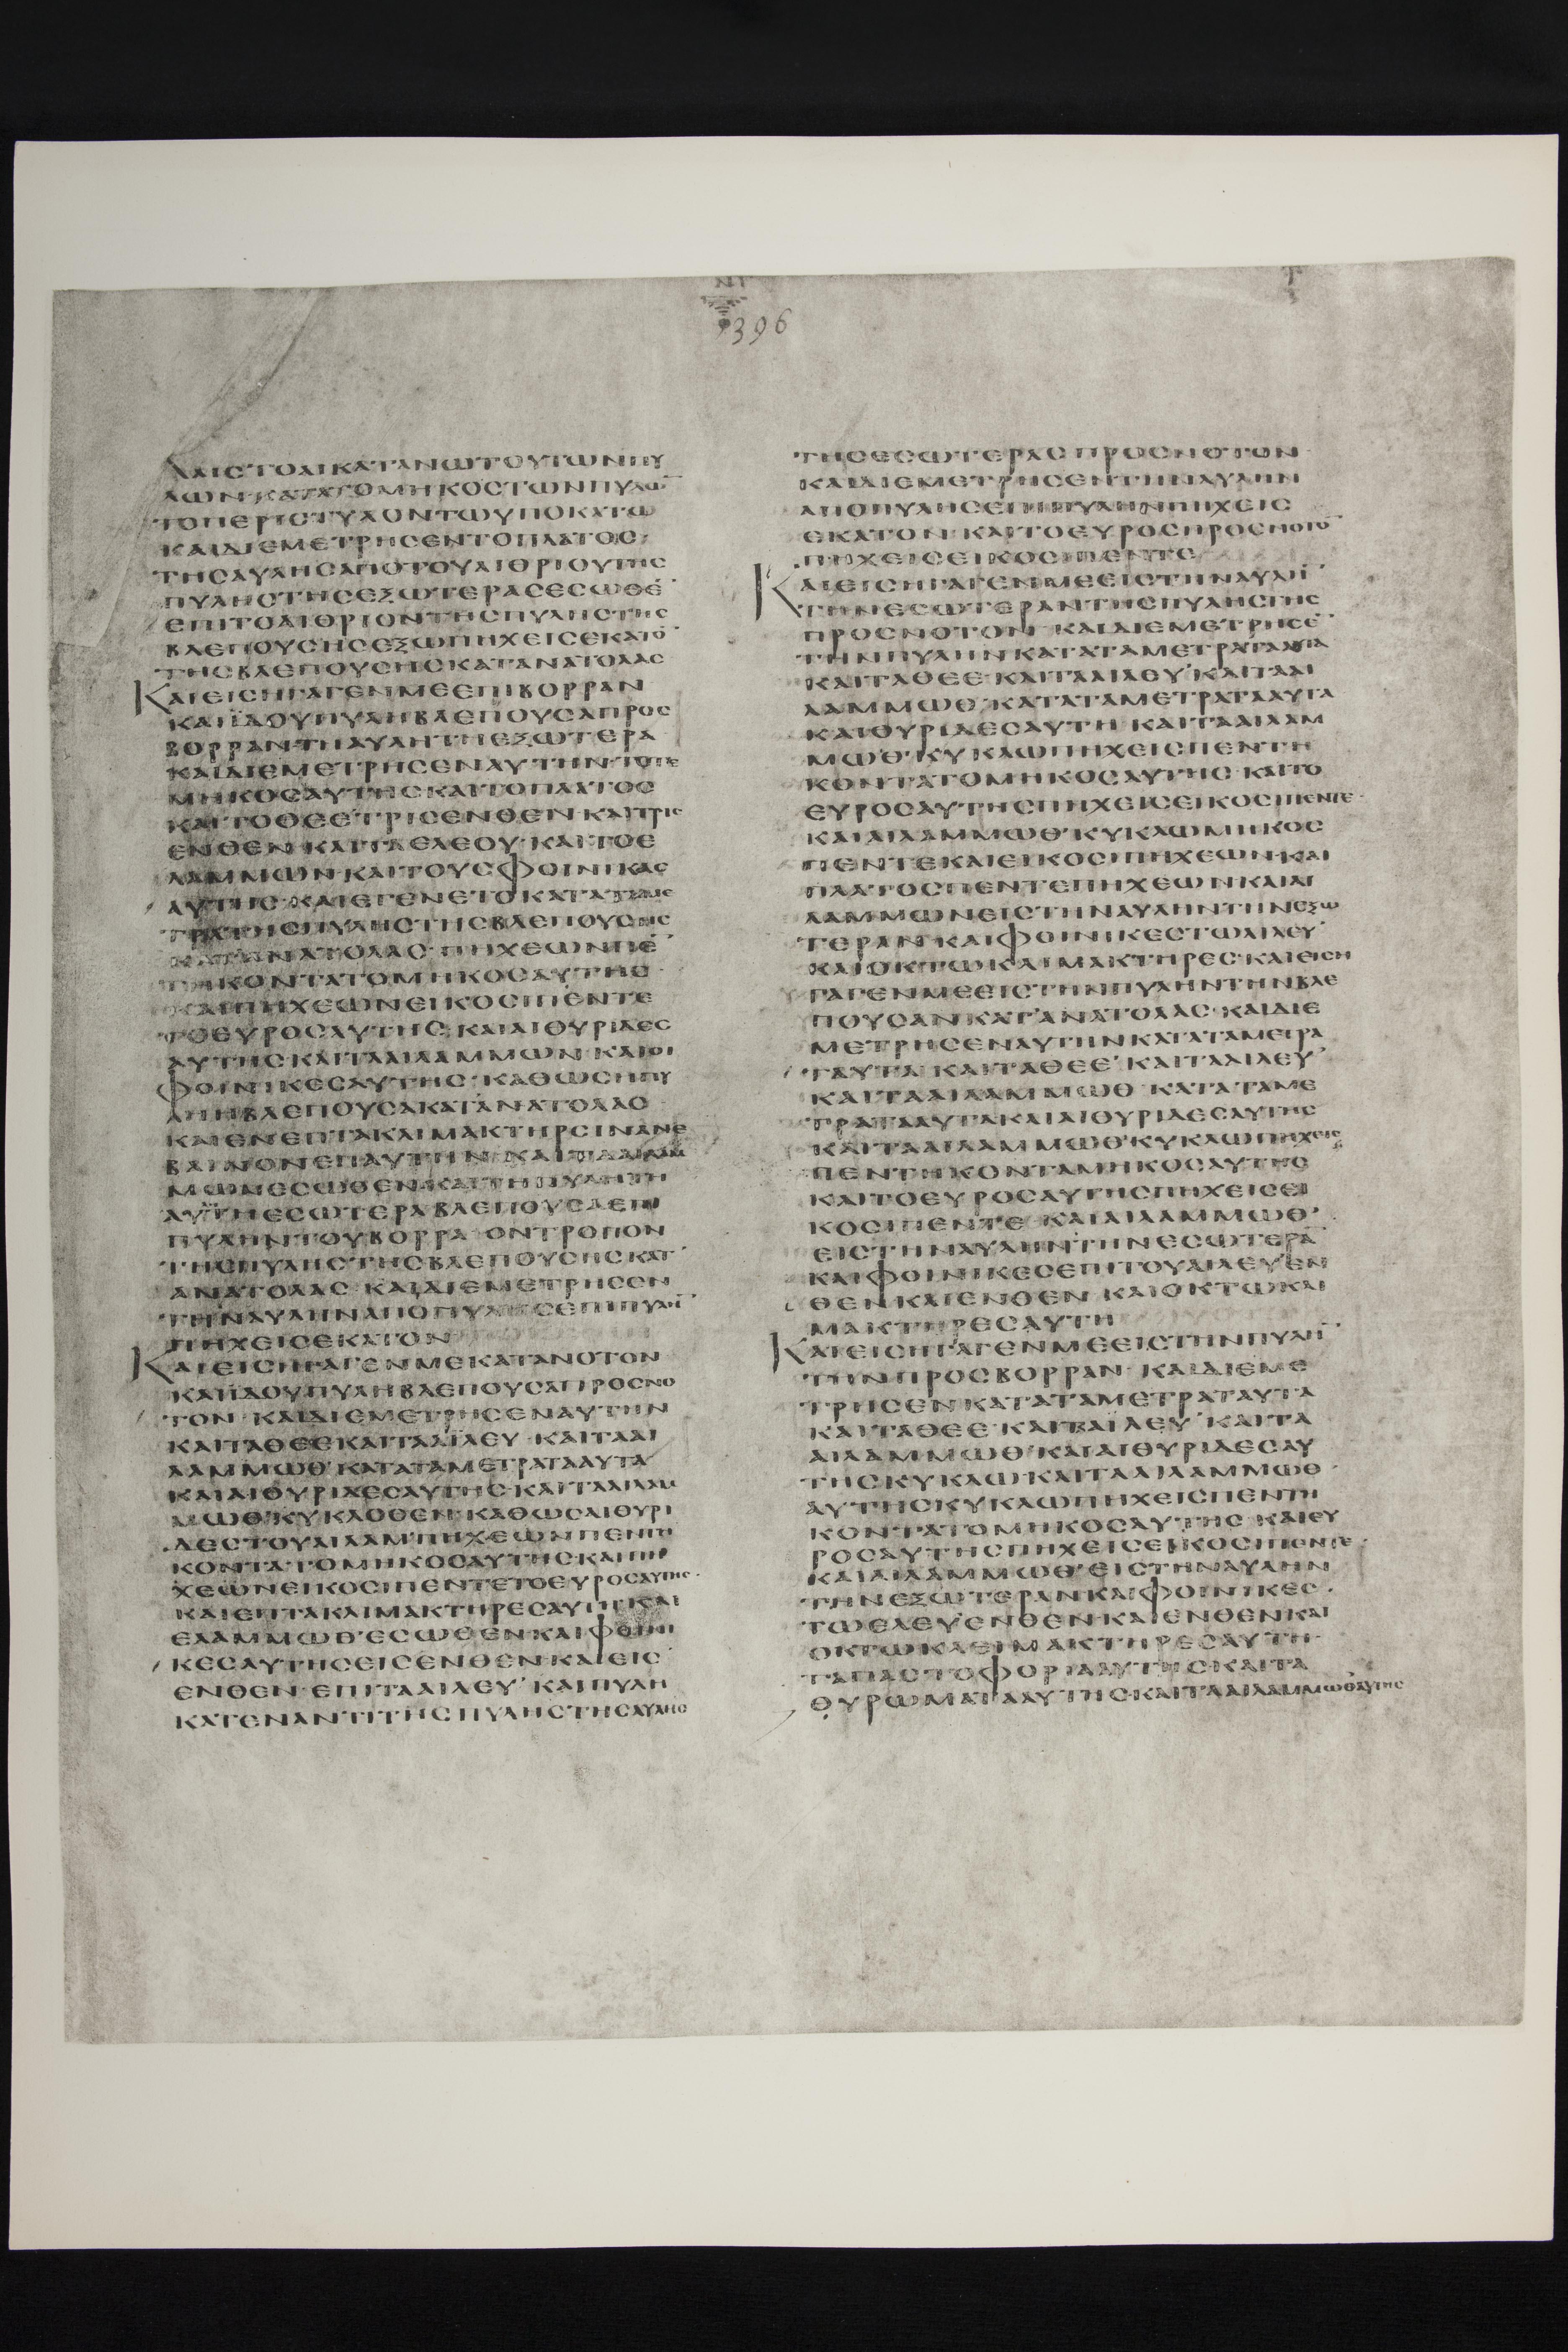 396
ΛΑΙСΤΟΑΙΚΑΤΑΝΩΤΟΥΤΩΝΠΥ
ΛΩΝ·ΚΑΤΑΤΟΜΗΚΟСΤΩΝΠΥΛΩ̅
ΤΟΠΕΡΙСΤΥΛΟΝΤΩΥΠΟΚΑΤΩ
ΚΑΙΔΙΕΜΕΤΡΗСΕΝΤΟΠΛΑΤΟС
ΤΗСΑΥΛΗСΑΠΟΤΟΥΑΙΘΡΙΟΥΤΗС
ΠΥΛΗСΤΗСΕΞΩΤΕΡΑСΕСΩΘΕ̅
ΕΠΙΤΟΑΙΘΡΙΟΝΤΗСΠΥΛΗСΤΗС
ΒΛΕΠΟΥСΗСΕΞΩΠΗΧΕΙСΕΚΑΤΟ̅
ΤΗСΒΛΕΠΟΥСΗСΚΑΤΑΝΑΤΟΛΑС
ΚΑΙΕΙСΗΓΑΓΕΝΜΕΕΠΙΒΟΡΡΑΝ
ΚΑΙΪΔΟΥΠΥΛΗΒΛΕΠΟΥСΑΠΡΟС
ΒΟΡΡΑΝΤΗΑΥΛΗΤΗΕΞΩΤΕΡΑ
ΚΑΙΔΙΕΜΕΤΡΗСΕΝΑΥΤΗΝΤΟΤΕ
ΜΗΚΟСΑΥΤΗСΚΑΙΤΟΠΛΑΤΟС
ΚΑΙΤΟΘΕΕΤΡΙСΕΝΘΕΝ·ΚΑΙΤΡΙС
ΕΝΘΕΝ·ΚΑΙΤΑΕΛΕΟΥ·ΚΑΙΤΟΕ
ΛΑΜΜΩΝ·ΚΑΙΤΟΥСΦΟΙΝΙΚΑС
ΑΥΤΗС·ΚΑΙΕΓΕΝΕΤΟΚΑΤΑΤΑΜΕ
ΤΡΑΤΗСΠΥΛΗСΤΗСΒΛΕΠΟΥСΗС
ΚΑΤΑΝΑΤΟΛΑС·ΠΗΧΕΩΝΠΕ̅
ΤΗΚΟΝΤΑΤΟΜΗΚΟСΑΥΤΗС·
ΚΑΙΠΗΧΕΩΝΕΙΚΟСΙΠΕΝΤΕ
ΤΟΕΥΡΟСΑΥΤΗС·ΚΑΙΑΙΘΥΡΙΔΕС
ΑΥΤΗСΚΑΙΤΑΑΙΛΑΜΜΩΝ·ΚΑΙΟΙ
ΦΟΙΝΙΚΕСΑΥΤΗС·ΚΑΘΩСΗΠΥ
ΛΗΗΒΛΕΠΟΥСΑΚΑΤΑΝΑΤΟΛΑС·
ΚΑΙΕΝΕΠΤΑΚΑΙΜΑΚΤΗΡСΙΝΑΝΕ
ΒΑΙΝΟΝΕΠΑΥΤΗΝ·ΚΑΙΤΑΑΙΛΑΜ
ΜΩΝΕСΩΘΕΝ·ΚΑΙΤΗΠΥΛΗΤΗ
ΑΥΛΗΤΗΕСΩΤΕΡΑΒΛΕΠΟΥСΑΕΠΙ
ΠΥΛΗΝΤΟΥΒΟΡΡΑ·ΟΝΤΡΟΠΟΝ
ΤΗСΠΥΛΗСΤΗСΒΛΕΠΟΥСΗСΚΑΤ
ΑΝΑΤΟΛΑС·ΚΑΙΔΙΕΜΕΤΡΗСΕΝ
ΤΗΝΑΥΛΗΝΑΠΟΠΥΛΗСΕΠΙΠΥΛΗ̅
ΠΗΧΕΙСΕΚΑΤΟΝ
ΚΑΙΕΙСΗΓΑΓΕΝΜΕΚΑΤΑΝΟΤΟΝ
ΚΑΙΪΔΟΥΠΥΛΗΒΛΕΠΟΥСΑΠΡΟСΝΟ
ΤΟΝ·ΚΑΙΔΙΕΜΕΤΡΗСΕΝΑΥΤΗΝ
ΚΑΙΤΑΘΕΕ·ΚΑΙΤΑΑΙΛΕΥ·ΚΑΙΤΑΑΙ
ΛΑΜΜΩΘ·ΚΑΤΑΤΑΜΕΤΡΑΤΑΑΥΤΑ
ΚΑΙΑΙΘΥΡΙΔΕСΑΥΤΗС·ΚΑΙΤΑΑΙΛΑΜ
ΜΩΘ·ΚΥΚΛΟΘΕΝ·ΚΑΘΩСΑΙΘΥΡΙ
ΔΕСΤΟΥΑΙΛΑΜ·ΠΗΧΕΩΝΠΕΝΤΗ
ΚΟΝΤΑΤΟΜΗΚΟСΑΥΤΗС·ΚΑΙΠΗ
ΧΕΩΝΕΙΚΟСΙΠΕΝΤΕΤΟΕΥΡΟСΑΥΤΗС·
ΚΑΙΕΠΤΑΚΑΙΜΑΚΤΗΡΕСΑΥΤΗΚΑΙ
ΕΛΑΜΜΩΘ·ΕСΩΘΕΝ·ΚΑΙΦΟΙΝΙ
ΚΕСΑΥΤΗСΕΙСΕΝΘΕΝ·ΚΑΙΕΙС
ΕΝΘΕΝ·ΕΠΙΤΑΑΙΛΕΥ·ΚΑΙΠΥΛΗ
ΚΑΤΕΝΑΝΤΙΤΗСΠΥΛΗСΤΗСΑΥΛΗС
ΤΗСΕСΩΤΕΡΑСΠΡΟСΝΟΤΟΝ·
ΚΑΙΔΙΕΜΕΤΡΗСΕΝΤΗΝΑΥΛΗΝ
ΑΠΟΠΥΛΗСΕΠΙΠΥΛΗΝΠΗΧΕΙС
ΕΚΑΤΟΝ·ΚΑΙΤΟΕΥΡΟСΠΡΟСΝΟΤΟ̅
ΠΗΧΕΙСΕΙΚΟСΙΠΕΝΤΕ
ΚΑΙΕΙСΗΓΑΓΕΝΜΕΕΙСΤΗΝΑΥΛΗ̅
ΤΗΝΕСΩΤΕΡΑΝΤΗСΠΥΛΗСΤΗС
ΠΡΟСΝΟΤΟΝ·ΚΑΙΔΙΕΜΕΤΡΗСΕ̅
ΤΗΝΠΥΛΗΝΚΑΤΑΤΑΜΕΤΡΑΤΑΑΥΤΑ
ΚΑΙΤΑΘΕΕ·ΚΑΙΤΑΑΙΛΕΥ·ΚΑΙΤΑΑΙ
ΛΑΜΜΩΘ·ΚΑΤΑΤΑΜΕΤΡΑΤΑΑΥΤΑ
ΚΑΙΘΥΡΙΔΕСΑΥΤΗ·ΚΑΙΤΑΑΙΛΑΜ
ΜΩΘ·ΚΥΚΛΩΠΗΧΕΙСΠΕΝΤΗ
ΚΟΝΤΑΤΟΜΗΚΟСΑΥΤΗС·ΚΑΙΤΟ
ΕΥΡΟСΑΥΤΗСΠΗΧΕΙСΕΙΚΟСΙΠΕΝΤΕ·
ΚΑΙΑΙΛΑΜΜΩΘ·ΚΥΚΛΩΜΗΚΟС
ΠΕΝΤΕΚΑΙΕΙΚΟСΙΠΗΧΕΩΝ·ΚΑΙ
ΠΛΑΤΟСΠΕΝΤΕΠΗΧΕΩΝΚΑΙΑΙ
ΛΑΜΜΩΝΕΙСΤΗΝΑΥΛΗΝΤΗΝΕΞΩ
ΤΕΡΑΝ·ΚΑΙΦΟΙΝΙΚΕСΤΩΑΙΛΕΥ
ΚΑΙΟΚΤΩΚΛΙΜΑΚΤΗΡΕС·ΚΑΙΕΙСΗ
ΓΑΓΕΝΜΕΕΙСΤΗΝΠΥΛΗΝΤΗΝΒΛΕ
ΠΟΥСΑΝΚΑΤΑΝΑΤΟΛΑС·ΚΑΙΔΙΕ
ΜΕΤΡΗСΕΝΑΥΤΗΝΚΑΤΑΤΑΜΕΤΡΑ
ΤΑΥΤΑ·ΚΑΙΤΑΘΕΕ·ΚΑΙΤΑΑΙΛΕΥ·
ΚΑΙΤΑΑΙΛΑΜΜΩΘ·ΚΑΤΑΤΑΜΕ
ΤΡΑΤΑΑΥΤΑΚΑΙΑΙΘΥΡΙΔΕСΑΥΤΗС
ΚΑΙΤΑΑΙΛΑΜΜΩΘ·ΚΥΚΛΩΠΗΧΕΙС
ΠΕΝΤΗΚΟΝΤΑΜΗΚΟСΑΥΤΗС
ΚΑΙΤΟΕΥΡΟСΑΥΤΗСΠΗΧΕΙСΕΙ
ΚΟСΙΠΕΝΤΕ·ΚΑΙΑΙΛΑΜΜΩΘ·
ΕΙСΤΗΝΑΥΛΗΝΤΗΝΕСΩΤΕΡΑ̅
ΚΑΙΦΟΙΝΙΚΕСΕΠΙΤΟΥΑΙΛΕΥ·ΕΝ
ΘΕΝΚΑΙΕΝΘΕΝ·ΚΑΙΟΚΤΩΚΛΙ
ΜΑΚΤΗΡΕСΑΥΤΗ
ΚΑΙΕΙСΗΓΑΓΕΝΜΕΕΙСΤΗΝΠΥΛΗ̅
ΤΗΝΠΡΟСΒΟΡΡΑΝ·ΚΑΙΔΙΕΜΕ
ΤΡΗСΕΝΚΑΤΑΤΑΜΕΤΡΑΤΑΥΤΑ
ΚΑΙΤΑΘΕΕ·ΚΑΙΤΑΑΙΛΕΥ·ΚΑΙΤΑ
ΑΙΛΑΜΜΩΘ·ΚΑΙΑΙΘΥΡΙΔΕСΑΥ
ΤΗСΚΥΚΛΩ·ΚΑΙΤΑΑΙΛΑΜΜΩΘ·
ΑΥΤΗСΚΥΚΛΩΠΗΧΕΙСΠΕΝΤΗ
ΚΟΝΤΑΤΟΜΗΚΟСΑΥΤΗС·ΚΑΙΕΥ
ΡΟСΑΥΤΗСΠΗΧΕΙСΕΙΚΟСΙΠΕΝΤΕ·
ΚΑΙΑΙΛΑΜΜΩΘ·ΕΙСΤΗΝΑΥΛΗΝ
ΤΗΝΕΞΩΤΕΡΑΝΚΑΙΦΟΙΝΙΚΕС·
ΤΩΕΛΕΥ·ΕΝΘΕΝΚΑΙΕΝΘΕΝΚΑΙ
ΟΚΤΩΚΛΕΙΜΑΚΤΗΡΕСΑΥΤΗ·
ΤΑΠΑСΤΟΦΟΡΙΑΑΥΤΗСΚΑΙΤΑ
ΘΥΡΩΜΑΤΑΑΥΤΗС·ΚΑΙΤΑΑΙΛΑΜΜΩΘΑΥΤΗС